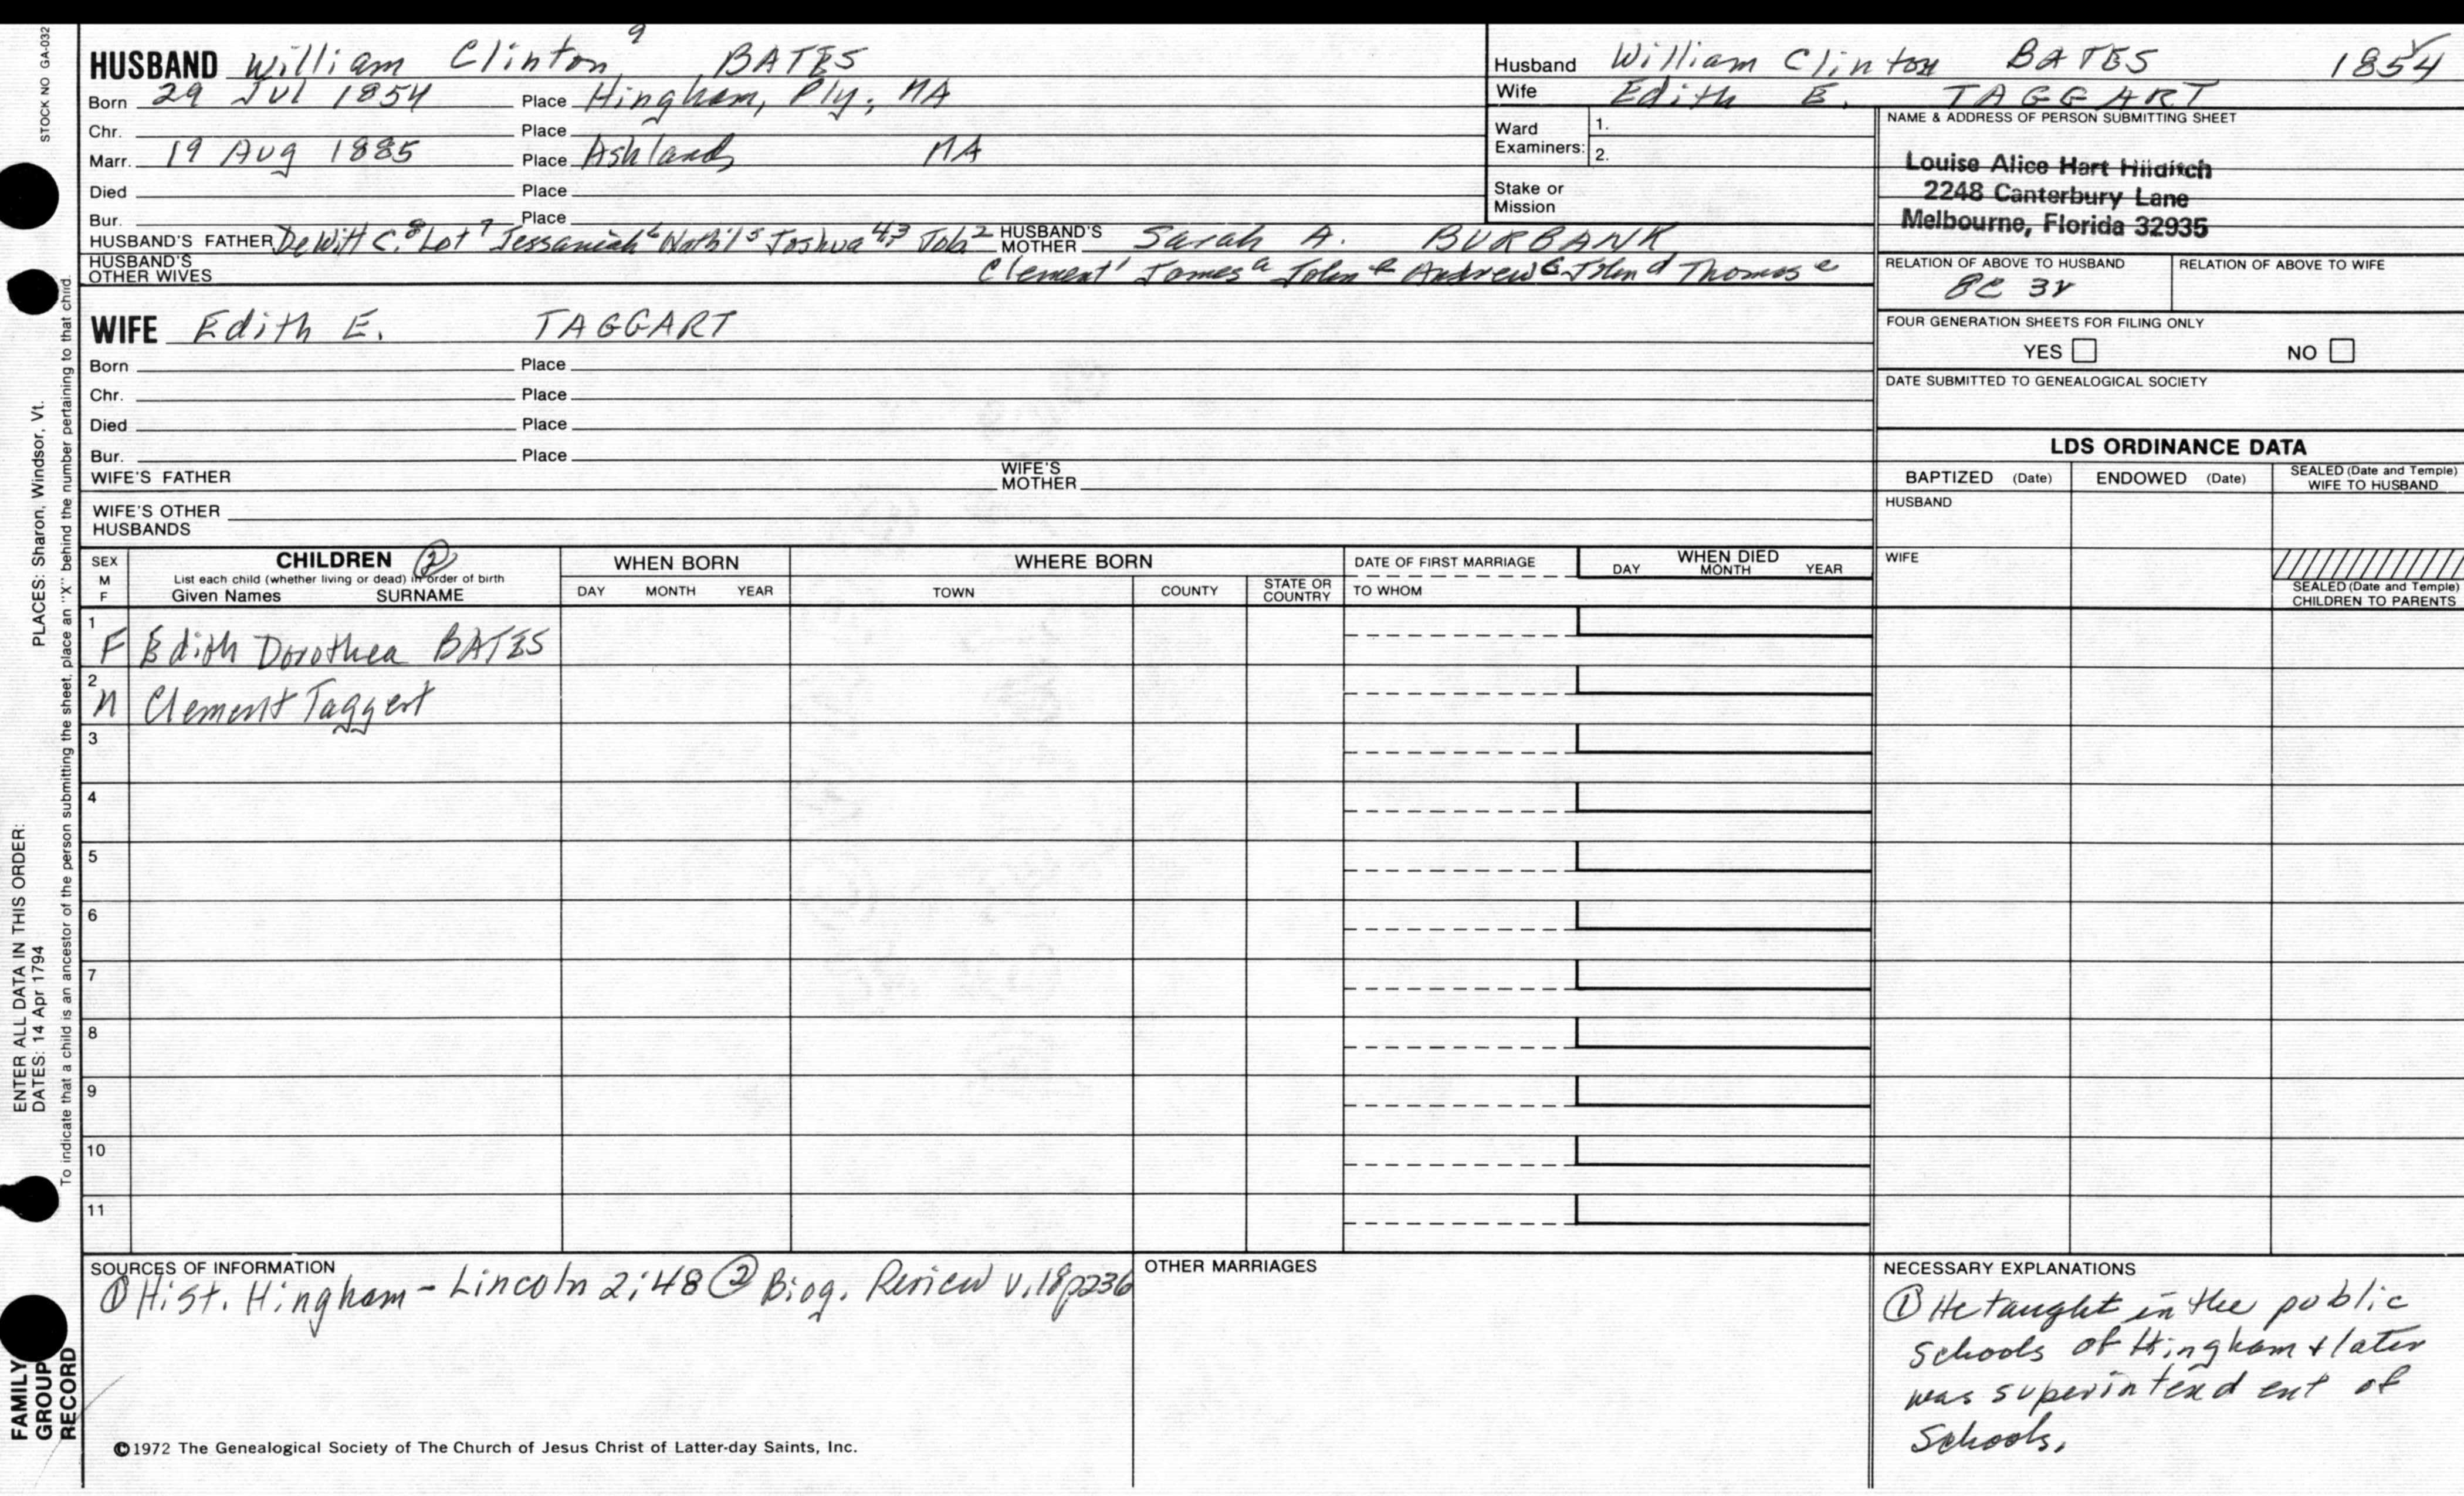 STOCK NO GA-032
HUSBAND William Clinton 9 BATES
Born 29 Jul 1854 Place Hingham, Ply, MA
Chr. Place
Marr. 19 Aug 1885 Place Ashland, MA
Died Place
Bur. Place
HUSBAND'S FATHER DeWitt C. 8 Lot 7 Jessaniah 6 Nath'l 5 Joshua 4,3 HUSBAND'S MOTHER Sarah A. BURBANK
HUSBAND'S OTHER WIVES Clement 1 James a John b Andrew c John d Thomas e
WIFE Edith E. TAGGART
Born Place
Chr. Place
Died Place
Bur. Place
WIFE'S FATHER WIFE'S MOTHER
WIFE'S OTHER HUSBANDS
Husband William Clinton BATES 1854
Wife Edith E. TAGGART
Ward Examiners: 1. 2.
Stake or Mission
NAME & ADDRESS OF PERSON SUBMITTING SHEET
Louise Alice Hart Hilditch
2248 Canterbury Lane
Melbourne, Florida 32935
RELATION OF ABOVE TO HUSBAND RELATION OF ABOVE TO WIFE
8C 3r
FOUR GENERATION SHEETS FOR FILING ONLY
YES NO
DATE SUBMITTED TO GENEALOGICAL SOCIETY
LDS ORDINANCE DATA
BAPTIZED (Date) ENDOWED (Date) SEALED (Date and Temple) WIFE TO HUSBAND
HUSBAND
WIFE
SEALED (Date and Temple) CHILDREN TO PARENTS
SEX M F
CHILDREN (2)
List each child (whether living or dead) in order of birth
Given Names SURNAME
WHEN BORN
DAY MONTH YEAR
WHERE BORN
TOWN COUNTY STATE OR COUNTRY
DATE OF FIRST MARRIAGE
TO WHOM
WHEN DIED
DAY MONTH YEAR
1 F Edith Dorothea BATES
2 M Clement Taggert
3
4
5
6
7
8
9
10
11
SOURCES OF INFORMATION
① Hist. Hingham - Lincoln 2:48 ② Biog. Review v.18p236
OTHER MARRIAGES
NECESSARY EXPLANATIONS
① He taught in the public
schools of Hingham & later
was superintendent of
schools.
©1972 The Genealogical Society of The Church of Jesus Christ of Latter-day Saints, Inc.
ENTER ALL DATA IN THIS ORDER:
DATES: 14 Apr 1794 PLACES: Sharon, Windsor, Vt.
To indicate that a child is an ancestor of the person submitting the sheet, place an "X" behind the number pertaining to that child.
FAMILY
GROUP
RECORD